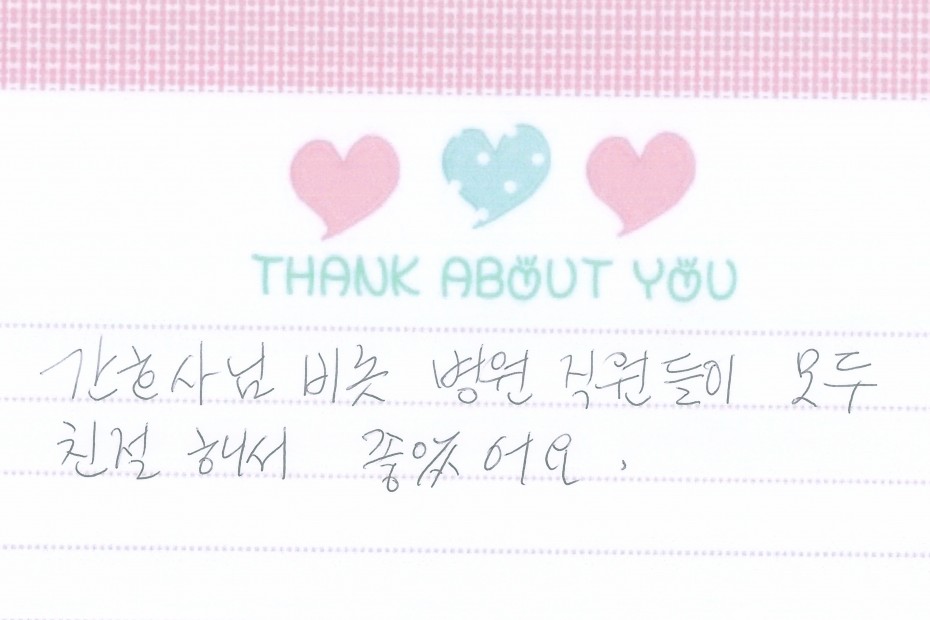 THANK ABOUT YOU
간호사님 비롯 병원 직원들이 모두
친절 해서 좋았어요.